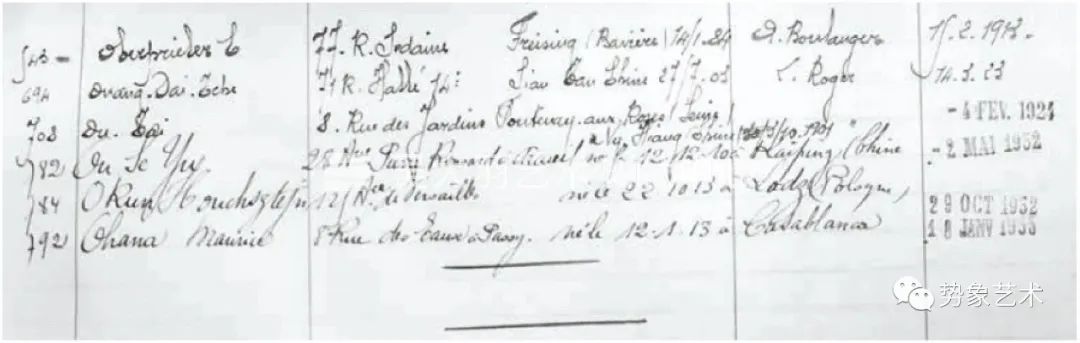 543 - Oberprieler E 77. R. Sedaine Freising (Bavière) 14/1.84 A. Boulanger 15.2.1912.
694 Ouang. Dai. Tche 71 R. Hallé 14: Siao Chine 27/7.03 L. Roger 14.3.23
703 Ou. Tai 8. Rue des Jardins Fontenay. aux. Roses (Seine) - 4 FEV. 1924
782 Ou Se Yux 28 Ave Pierre né le 12/12.10 à Kaiping (Chine - 2 MAI 1932
784 Okun 12 Av. de Versailles né le 22.10 13 à Lodz Pologne, 29 OCT 1932
792 Ohana Maurice 8 Rue des Eaux à Passy. né le 12.1.13 à Casablanca 18 JANV 1933
势象艺术